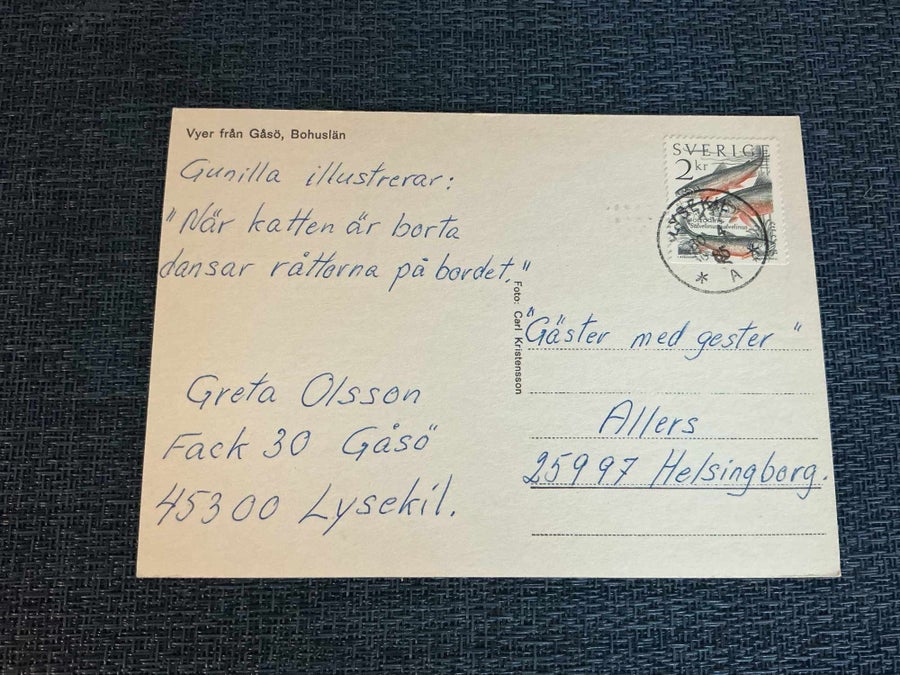 Vyer från Gåsö, Bohuslän
Gunilla illustrerar:
"När katten är borta
dansar råttorna på bordet."
Greta Olsson
Fack 30 Gåsö
45300 Lysekil.
Foto: Carl Kristensson
SVERIGE
2 kr
LYSEKIL
A
"Gäster med gester"
Allers
25997 Helsingborg.